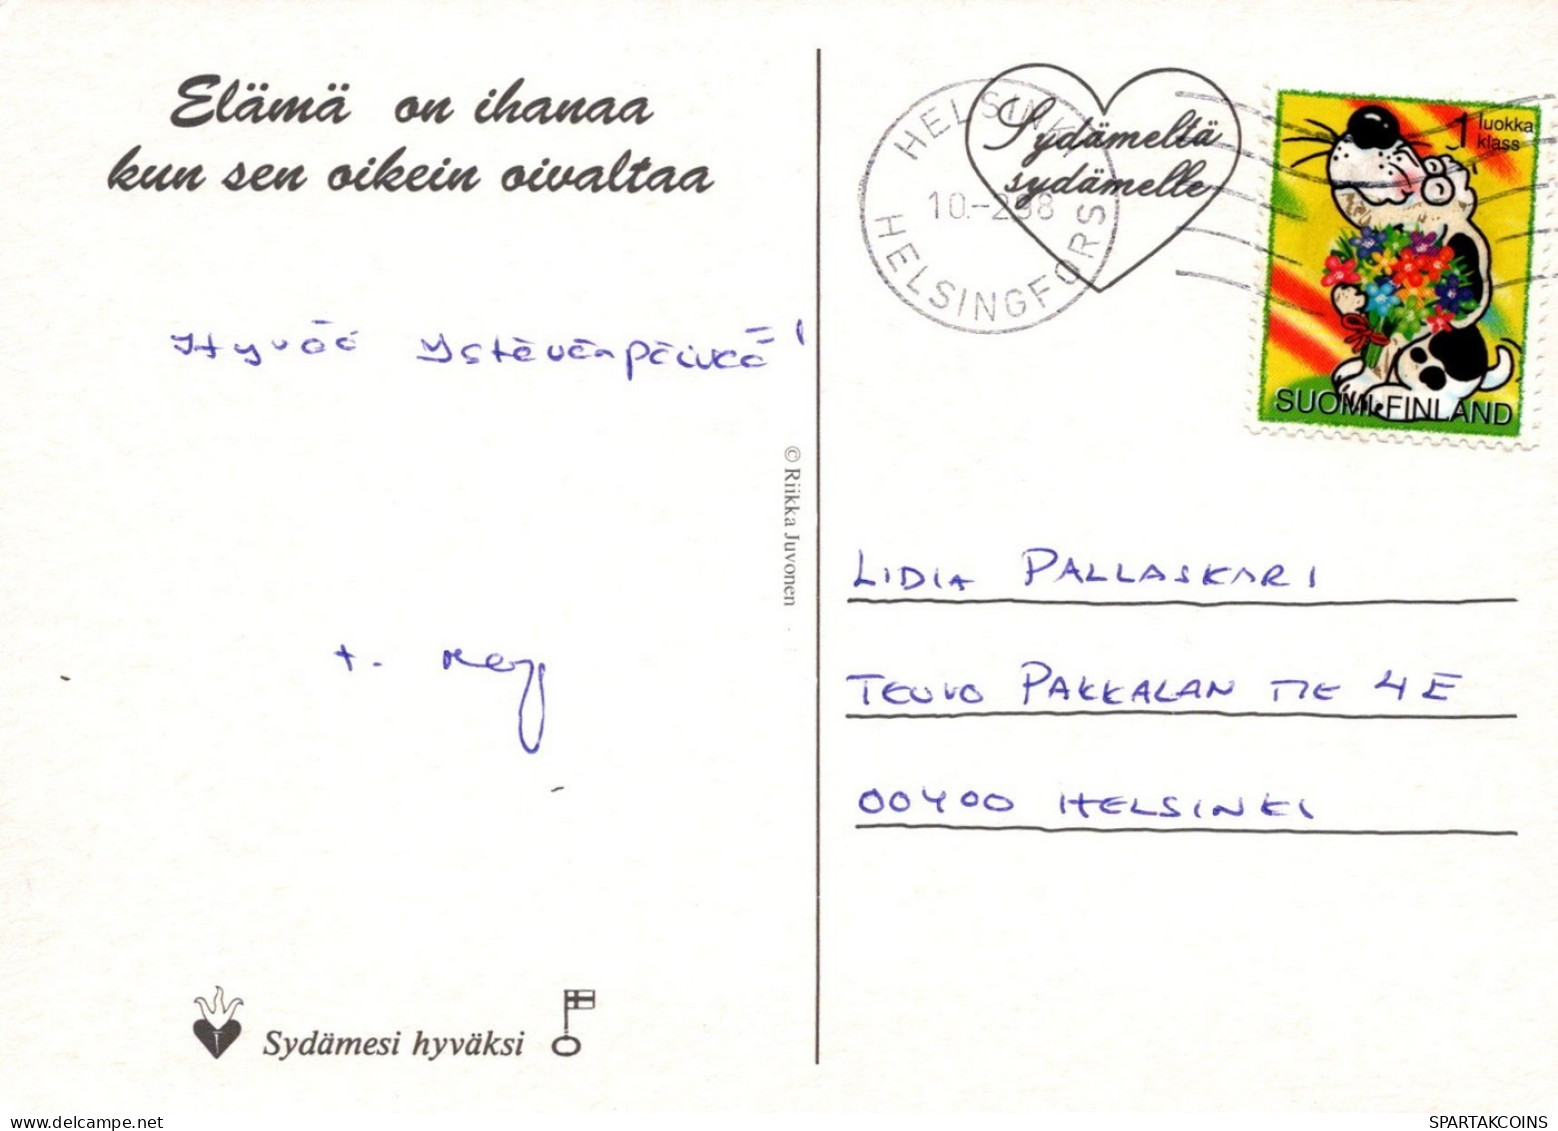 Elämä on ihanaa
kun sen oikein oivaltaa
Hyvää Ystävänpäivää!
t.
© Riikka Juvonen
Sydämesi hyväksi
HELSINKI
10.-2.98
HELSINGFORS
Sydämeltä
sydämelle
1 luokka
klass
SUOMI-FINLAND
LIDIA PALLASKARI
TEUVO PAKKALAN TIE 4E
00400 HELSINKI
SPARTAKCOINS